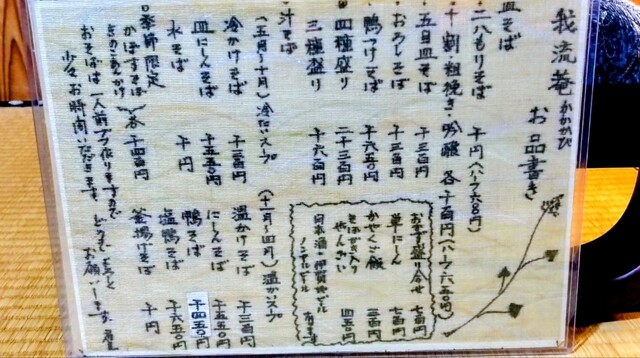 我流菴 お品書き
皿そば
・二八もりそば 千円(ハーフ六〇〇円)
・十割・粗挽き・吟醸 各千百円(ハーフ六五〇円)
・五目皿そば 千三百円
・おろしそば 千三百円
・鴨つけそば 千六五〇円
・四種盛り 二千三百円
三種盛り 千六百円
お茶事盛り合せ 七百円
単にしん 七百円
かやくご飯 三百円
そばがき入り
ぜんざい 四五〇円
日本酒・伊賀地ビール
ノンアルビール 有ります
・汁そば
(五月〜十月)冷たいスープ
冷かけそば 千三百円
皿にしんそば 千五五〇円
水そば 千円
(十一月〜四月)温かスープ
温かけそば 千三百円
にしんそば 千五五〇円
鴨そば 千四五〇円
塩鴨そば 千六五〇円
釜揚げそば 千円
季節限定
かぼすそば
きのこあんかけ 各千四百円
おそばは一人前ずつ作りますので
少々お時間いただきます どうぞよろしく
お願いします